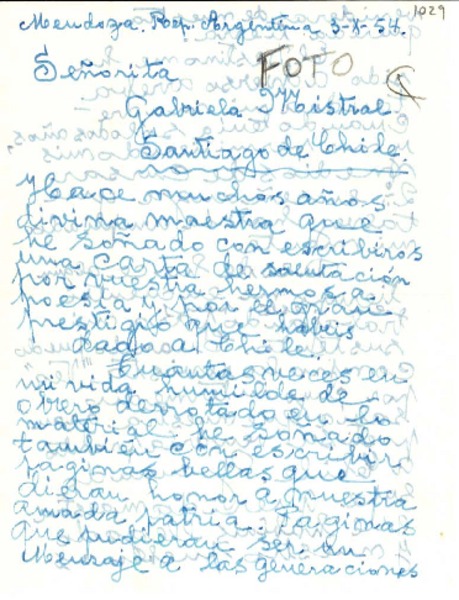 1029
Mendoza. Rep. Argentina 3-X-54.
FOTO
Señorita
Gabriela Mistral
Santiago de Chile.
Hace muchos años
divina maestra que
he soñado con escribiros
una carta de salutación
por vuestra hermosa
poesia y por el gran
prestigio que habeis
dado a Chile.
Cuántas veces en
mi vida humilde de
obrero derrotado en lo
material he soñado
tambien con escribir
paginas bellas que
dieran honor a nuestra
amada patria. Paginas
que pudieran ser un
Mensaje a las generaciones